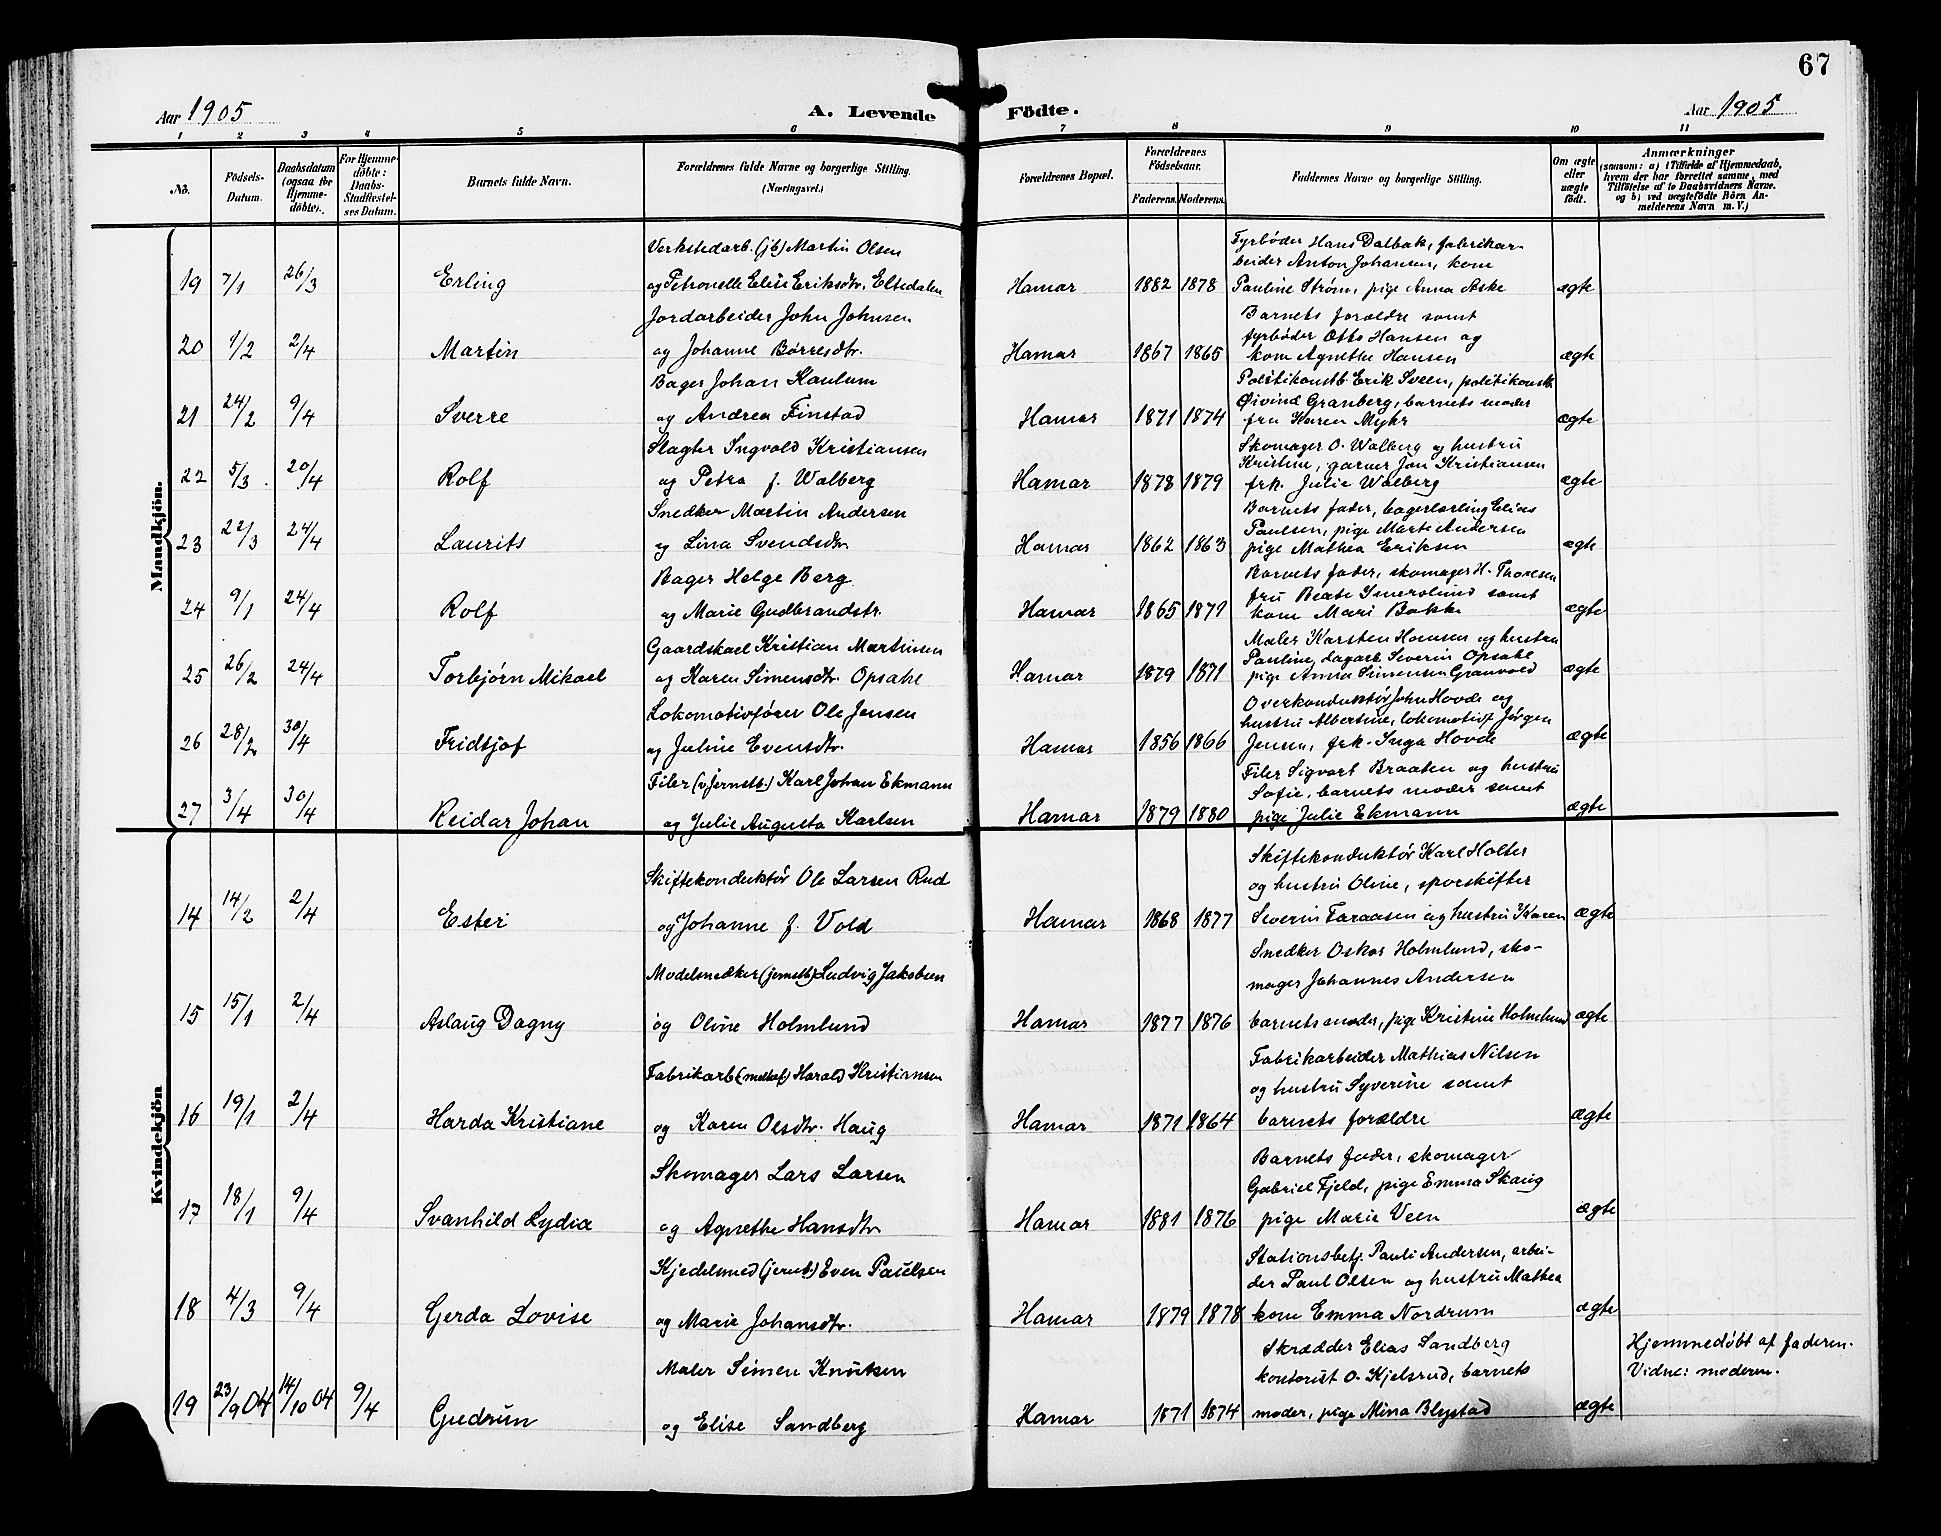 67
Aar 1905
A. Levende Födte.
Aar 1905
1 2 3 4 5 6 7 8 9 10 11
No.
Födsels-Datum.
Daabsdatum (ogsaa for Hjemme-döbte).
For Hjemme-döbte: Daabs-Stadfæstel-ses Datum.
Barnets fulde Navn.
Forældrenes fulde Navne og borgerlige Stilling.
(Næringsvei.)
Forældrenes Bopæl.
Forældrenes Födselsaar.
Faderens. Moderens.
Faddernes Navne og borgerlige Stilling.
Om ægte eller uægte födt.
Anmærkninger
(saasom: a) i Tilfælde af Hjemmedaab,
hvem der har forrettet samme, med
Tilföielse af to Daabsvidners Navne.
og b) ved uægtefödte Börn An-
melderens Navn m. V.)
Mandkjön.
19 7/1 26/3 Erling
Verkstedarb. (jb) Martin Olsen
og Petronelle Elise Eriksdtr. Eltedalen
Hamar 1882 1878
Fyrbøder Hans Dalbak, fabrikar-
beider Anton Johansen, kone
Pauline Strøm, pige Anna Aske
ægte
20 1/2 2/4 Martin
Jordarbeider John Johnsen
og Johanne Børresdtr.
Hamar 1867 1865
Barnets forældre samt
fyrbøder Otto Hansen og
kone Agnethe Hansen
ægte
21 24/2 9/4 Sverre
Bager Johan Kaulum
og Andrea Finstad
Hamar 1871 1874
Politikonstb Erik Sveen, politikonstb
Øivind Granberg, barnets moder
fru Karen Myhr
ægte
22 5/3 20/4 Rolf
Slagter Ingvold Kristiansen
og Petra f. Walberg
Hamar 1878 1879
Skomager O. Walberg og hustru
Kristine, garver Jon Kristiansen
frk. Julie Walberg
ægte
23 22/3 24/4 Laurits
Snedker Martin Andersen
og Lina Svendsdtr.
Hamar 1862 1863
Barnets fader, bagerlærling Elias
Paulsen, pige Marte Andersen
pige Mathea Eriksen
ægte
24 9/1 24/4 Rolf
Bager Helge Berg
og Marie Gudbrandstr.
Hamar 1865 1871
Barnets fader, skomager H. Thoresen
fru Beate Imerslund samt
kone Mari Bakke
ægte
25 26/2 24/4 Torbjørn Mikael
Gaardskarl Kristian Martinsen
og Karen Simensdtr. Opsahl
Hamar 1879 1871
Maler Karsten Hansen og hustru
Pauline, dagarb. Severin Opsahl
pige Anna Simensen Granvold
ægte
26 28/2 30/4 Fridtjof
Lokomotivfører Ole Jensen
og Juline Evensdtr.
Hamar 1856 1866
Overkonduktør John Hovde og
hustru Albertine, lokomotivf Jørgen
Jensen, frk. Inga Hovde
ægte
27 3/4 30/4 Reidar Johan
Filer (v jernstb.) Karl Johan Ekmann
og Julie Augusta Karlsen
Hamar 1879 1880
Filer Sigvart Braaten og hustru
Sofie, barnets moder samt
pige Julie Ekmann
ægte
Kvindekjön
14 14/2 2/4 Ester
Skiftekonduktør Ole Larsen Rud
og Johanne f. Vold
Hamar 1868 1877
Skiftekonduktør Karl Holter
og hustru Oline, sporskifter
Severin Faraasen og hustru Karen
ægte
15 15/1 2/4 Aslaug Dagny
Modelsnedker (jernstb) Ludvig Jakobsen
og Oline Holmlund
Hamar 1877 1876
Snedker Oskar Holmlund, sko-
mager Johannes Andersen
barnets moder, pige Kristine Holmlund
ægte
16 19/1 2/4 Harda Kristiane
Fabrikarb (melkef) Harald Kristiansen
og Karen Olsdtr. Haug
Hamar 1871 1864
Fabrikarbeider Mathias Nilsen
og hustru Syverine samt
barnets forældre
ægte
17 18/1 9/4 Svanhild Lydia
Skomager Lars Larsen
og Agnethe Hansdtr
Hamar 1881 1876
Barnets fader, skomager
Gabriel Fjeld, pige Emma Skaug
pige Marie Veen
ægte
18 4/3 9/4 Gerda Lovise
Kjedelsmed (jernb.) Even Paulsen
og Marie Johansdtr.
Hamar 1879 1878
Stationsbetj. Pauli Andersen, arbei-
der Paul Olsen og hustru Mathea
kone Emma Nordrum
ægte
19 23/9 04 14/10 04 9/4 Gudrun
Maler Simen Knutsen
og Elise Sandberg
Hamar 1871 1874
Skrædder Elias Sandberg
kontorist O. Kjelsrud, barnets
moder, pige Mina Blystad
ægte
Hjemmedøbt af faderen.
Vidne: moderen.